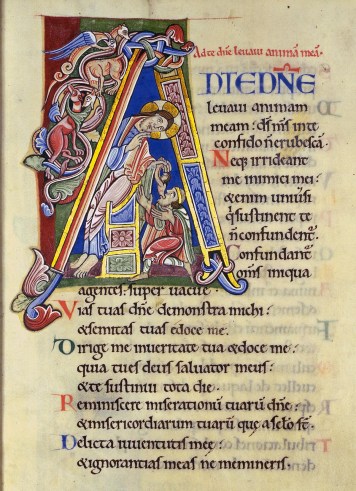 Ad te dñe levavi animã meã.
AD TE DÑE
levavi animam
meam: ds ms in te
confido ñ erubescã.
Neq; irrideant
me inimici mei:
&enim univsi
q sustinent te
ñ confundentˀ.
Confundantˀ
oms iniqua
agentes: super vacue.
Vias tuas dñe demonstra michi:
&semitas tuas edoce me.
Dirige me in veritate tua &doce me:
quia tu es deus salvator meus:
&te sustinui tota die.
Reminiscere miserationũ tuarũ dñe:
&misericordiarum tuarũ que a seło st̃.
Delicta iuventutis mee:
&ignorantias meas ne memineris.